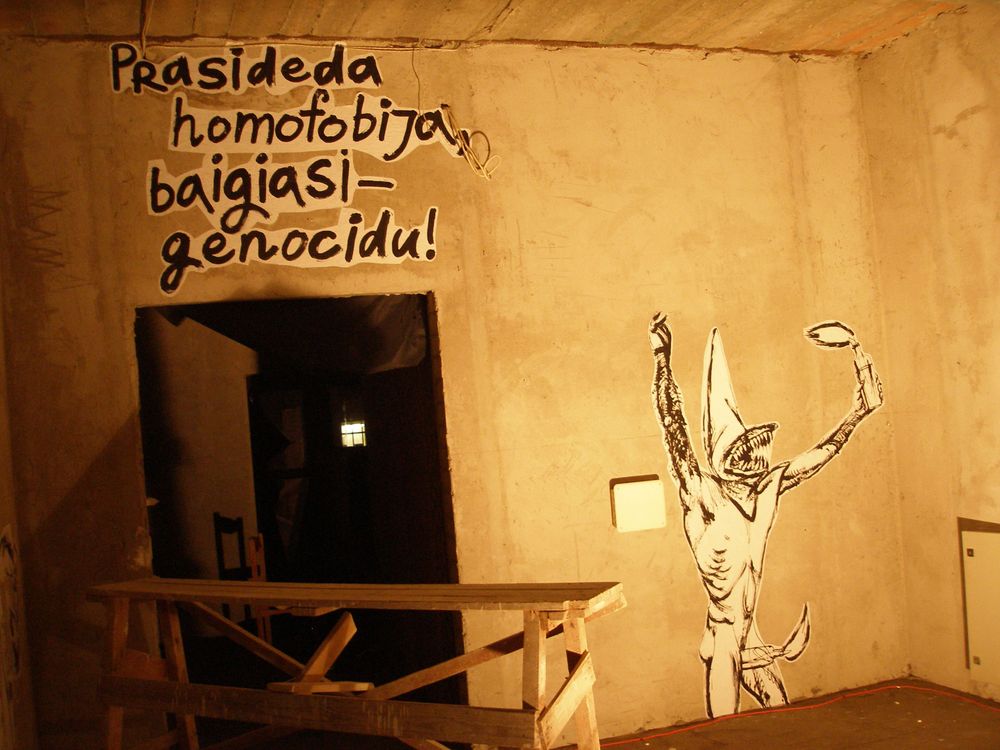 Prasideda
homofobija,
baigiasi-
genocidu!